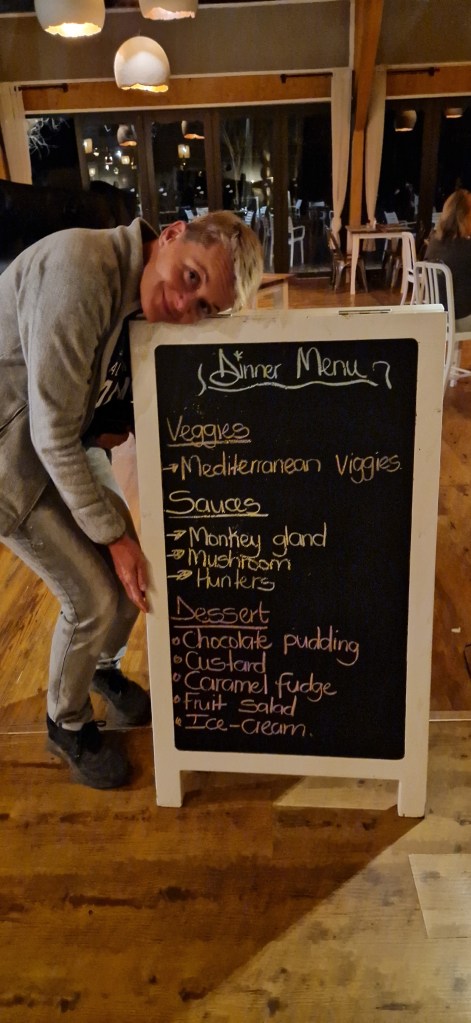 Dinner Menu
Veggies
→ Mediterranean Viggies.
Sauces
→ Monkey gland
→ Mushroom
→ Hunters
Dessert
• Chocolate pudding
• Custard
• Caramel fudge
• Fruit Salad
• Ice-cream.